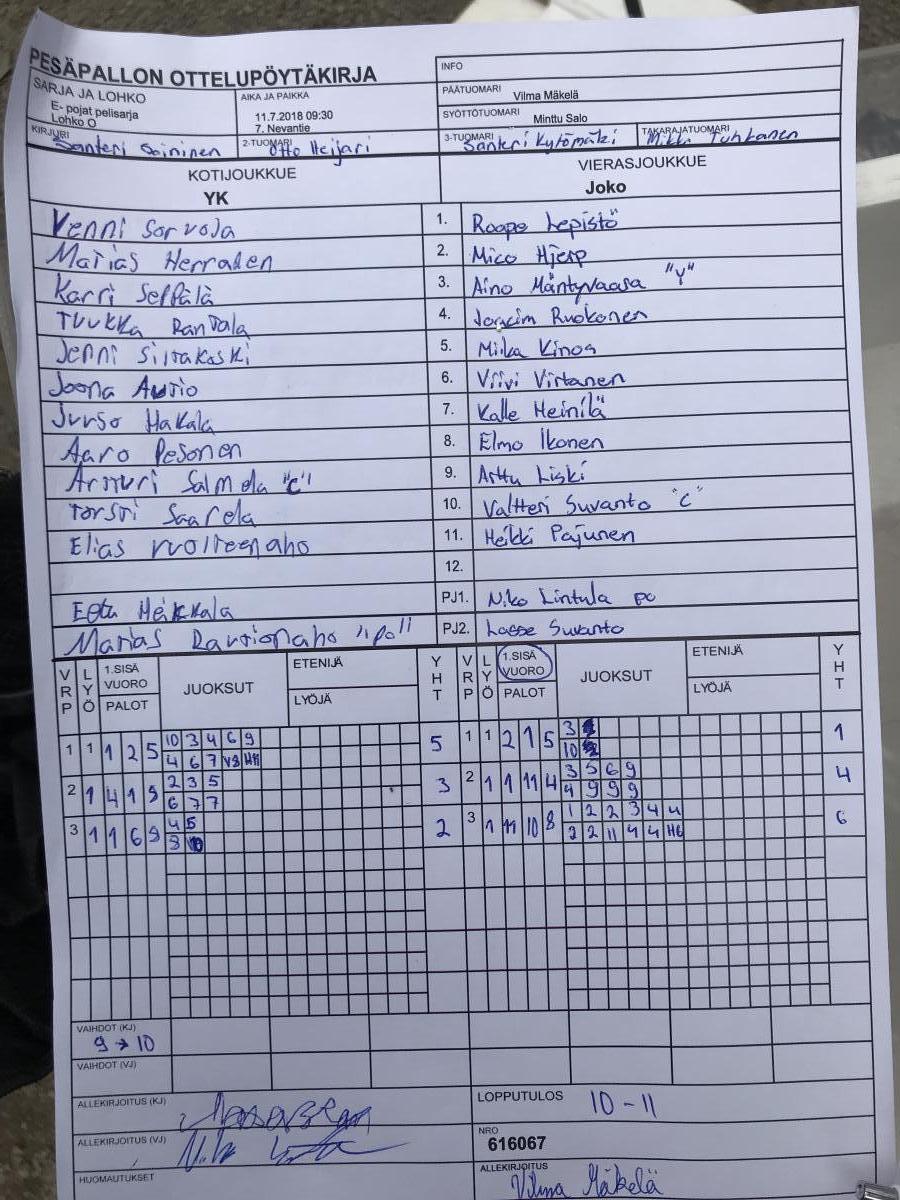 PESÄPALLON OTTELUPÖYTÄKIRJA
INFO
SARJA JA LOHKO
E- pojat pelisarja
Lohko O
AIKA JA PAIKKA
11.7.2018 09:30
7. Nevantie
PÄÄTUOMARI Vilma Mäkelä
SYÖTTÖTUOMARI Minttu Salo
KIRJURI Santeri Soininen
2-TUOMARI Otto Heijari
3-TUOMARI Santeri Kytömäki
TAKARAJATUOMARI Mikki Tuhkanen
KOTIJOUKKUE VIERASJOUKKUE
YK Joko
Venni Sorvoja 1. Roope Lepistö
Matias Herralen 2. Mico Hjerp
Karri Seppälä 3. Aino Mäntyvaara "Y"
Tuukka Rantala 4. Joacim Ruokonen
Jenni Siltakoski 5. Miika Kinos
Joona Aurio 6. Viivi Virtanen
Juuso Hakala 7. Kalle Heinilä
Aaro Pesonen 8. Elmo Ikonen
Artturi Salmela "C" 9. Arttu Liski
Torsti Saarela 10. Valtteri Suvanto "C"
Elias Vuolteenaho 11. Heikki Pajunen
12.
Eetu Mäkkala PJ1. Niko Lintula PO
Matias Rautionaho "Po" PJ2. Lasse Suvanto
VRP LYÖ 1.SISÄ VUORO PALOT JUOKSUT ETENIJÄ LYÖJÄ YHT VRP LYÖ 1.SISÄ VUORO PALOT JUOKSUT ETENIJÄ LYÖJÄ YHT
1 1 1 2 5 10 3 4 6 9 5 1 1 2 1 5 3 1
4 6 7 V8 H11 10
2 1 4 1 9 2 3 5 3 2 1 1 11 4 3 5 6 9 4
6 7 7 4 9 9 9
3 1 1 6 9 4 5 2 3 1 11 10 8 1 2 2 3 4 4 6
8 10 2 2 11 4 4 H6
VAIHDOT (KJ)
9 → 10
VAIHDOT (VJ)
ALLEKIRJOITUS (KJ)
LOPPUTULOS 10 - 11
ALLEKIRJOITUS (VJ)
NRO
616067
HUOMAUTUKSET
ALLEKIRJOITUS
Vilma Mäkelä